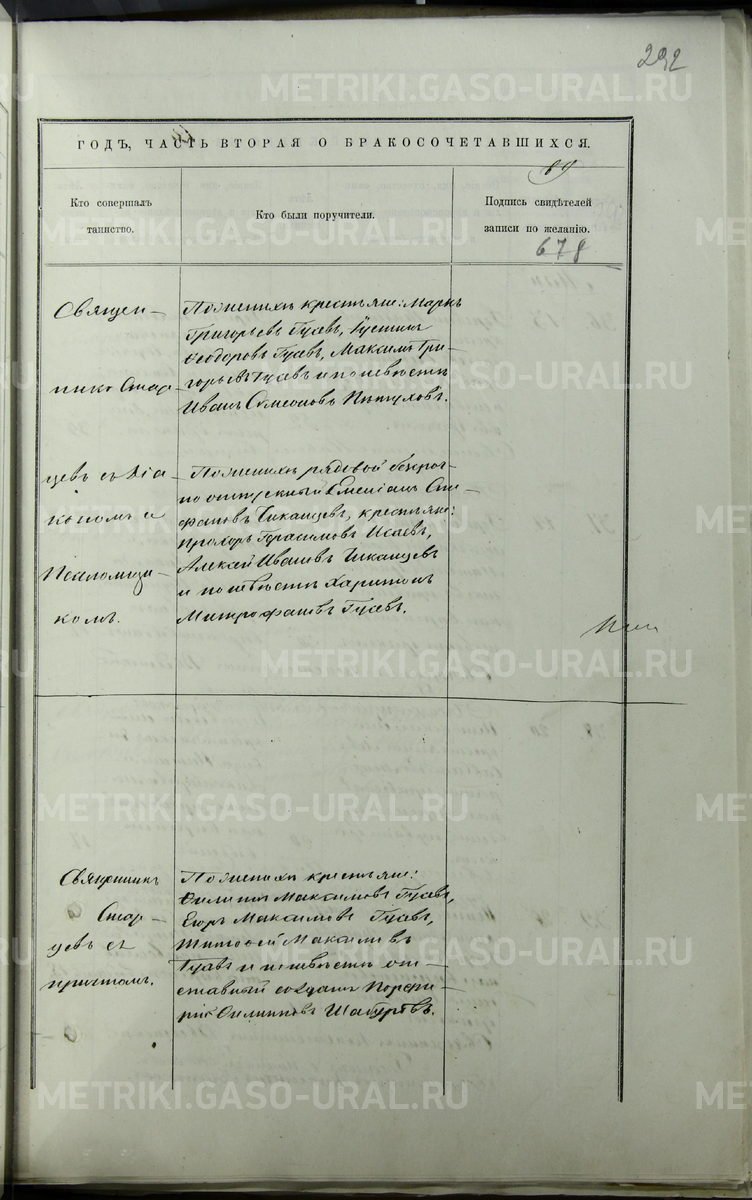 292
ГОДЪ, ЧАСТЬ ВТОРАЯ О БРАКОСОЧЕТАВШИХСЯ.
89
Кто совершалъ
таинство.
Кто были поручители.
Подпись свидѣтелей
записи по желанію.
678
Священ-
никъ Стар-
цевъ съ діа-
кономъ и
Псаломщи-
комъ.
По женихѣ крестьяне: Маркъ
Григорьевъ Гуевъ, Іустинъ
Ѳеодоровъ Гуевъ, Максимъ Гри-
горьевъ Гуевъ и по невѣстѣ
Иванъ Симеоновъ Пѣтуховъ.
По женихѣ рядовой безсроч-
но отпускный Емеліанъ Сте-
фановъ Чиканцевъ, крестьяне:
Прохоръ Герасимовъ Исаевъ,
Алексѣй Ивановъ Чиканцевъ
и по невѣстѣ Харитонъ
Митрофановъ Гуевъ.
Священникъ
Стар-
цевъ съ
причтомъ.
По женихѣ крестьяне:
Филиппъ Максимовъ Гуевъ,
Егоръ Максимовъ Гуевъ,
Тимофей Максимовъ
Гуевъ и по невѣстѣ от-
ставный солдатъ Порфи-
рій Филипповъ Шабуровъ.
METRIKI.GASO-URAL.RU